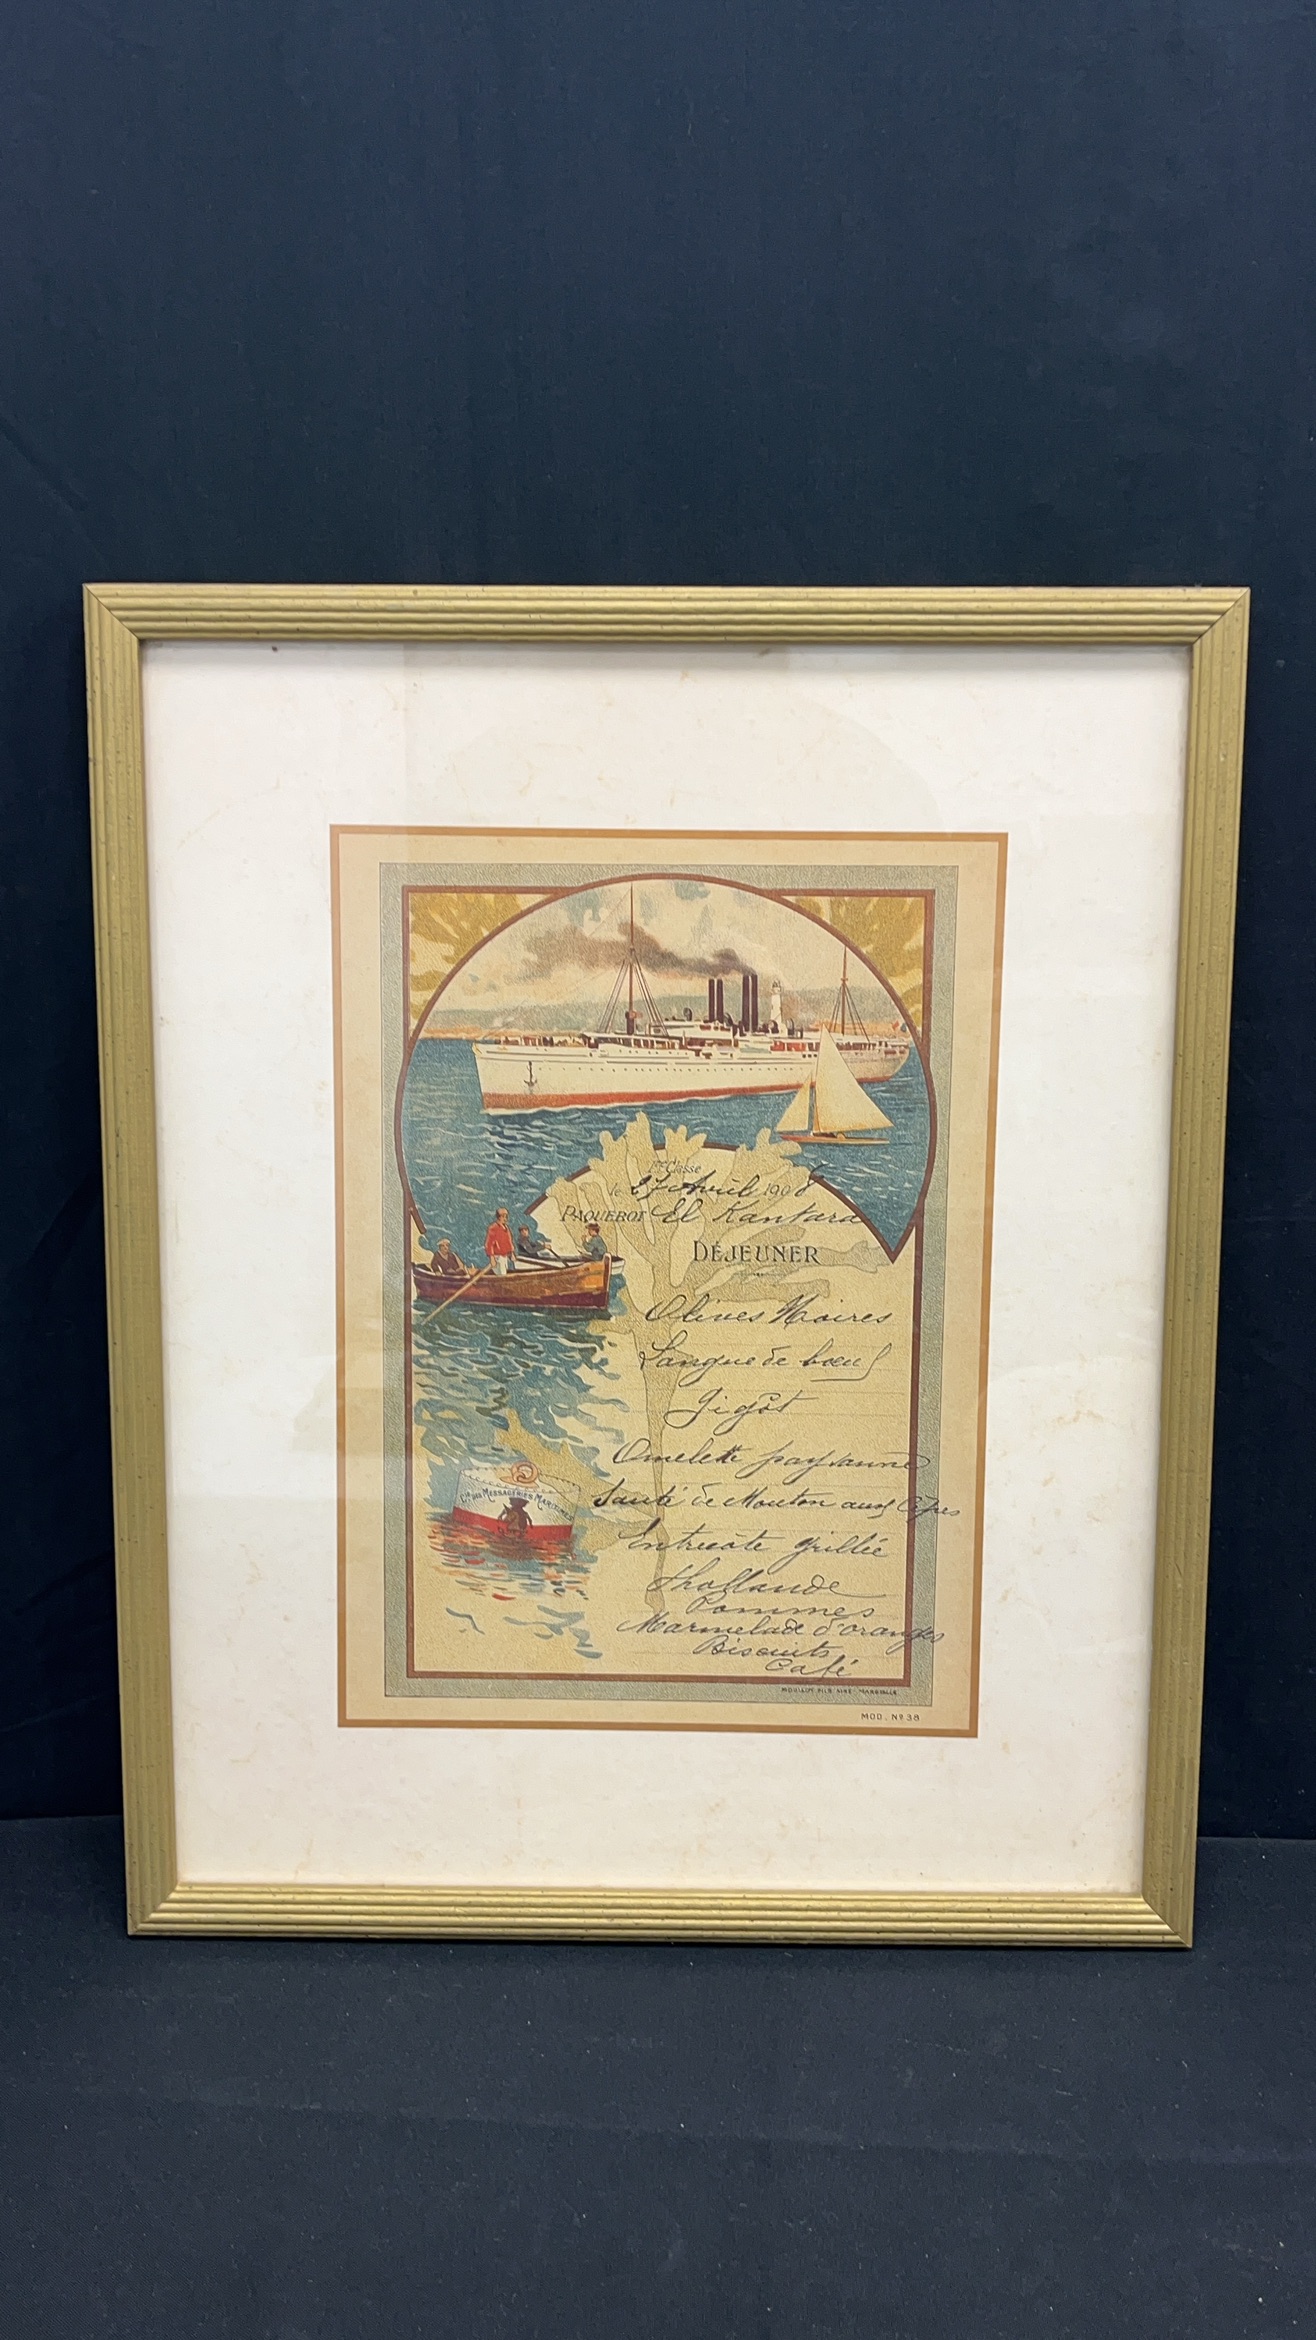 1re Classe
le 27 Avril 1908
PAQUEBOT El Kantara
DÉJEUNER
Olives Noires
Langue de bœuf
Gigôt
Omelette paysanne
Sauté de Mouton aux Cèpes
Entrecôte grillée
Hollande
Pommes
Marmelade d'oranges
Biscuits
Café
Cie DES MESSAGERIES MARITIMES
MOULLOT FILS AINÉ MARSEILLE
MOD. No 38